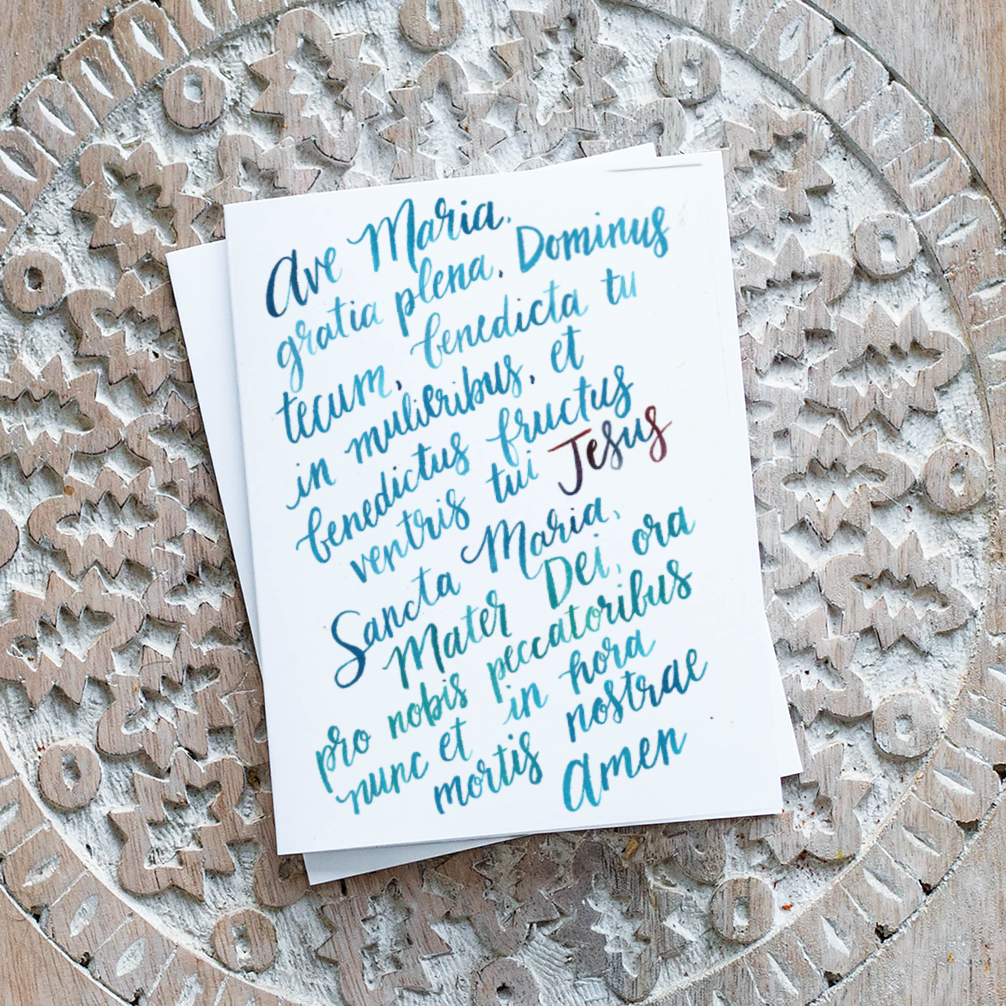 Ave Maria,
gratia plena, Dominus
tecum, benedicta tu
in mulieribus, et
benedictus fructus
ventris tui Jesus
Sancta Maria,
Mater Dei, ora
pro nobis peccatoribus
nunc et in hora
mortis nostrae
Amen